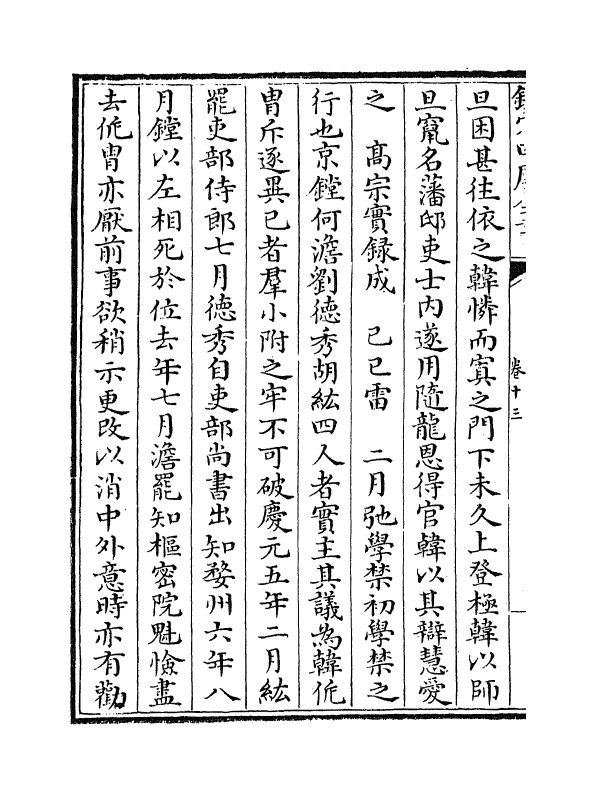 旦困甚往依之韓憐而寘之門下未久上登極韓以師
旦竄名藩邸吏士內遂用隨龍恩得官韓以其辯慧愛
之　髙宗實録成　己已雷　二月弛學禁初學禁之
行也京鏜何澹劉徳秀胡紘四人者實主其議為韓侂
胄斥逐異已者羣小附之牢不可破慶元五年二月紘
罷吏部侍郎七月徳秀自吏部尚書出知婺州六年八
月鏜以左相死於位去年七月澹罷知樞密院魁憸盡
去侂胄亦厭前事欲稍示更改以消中外意時亦有勸
卷十三